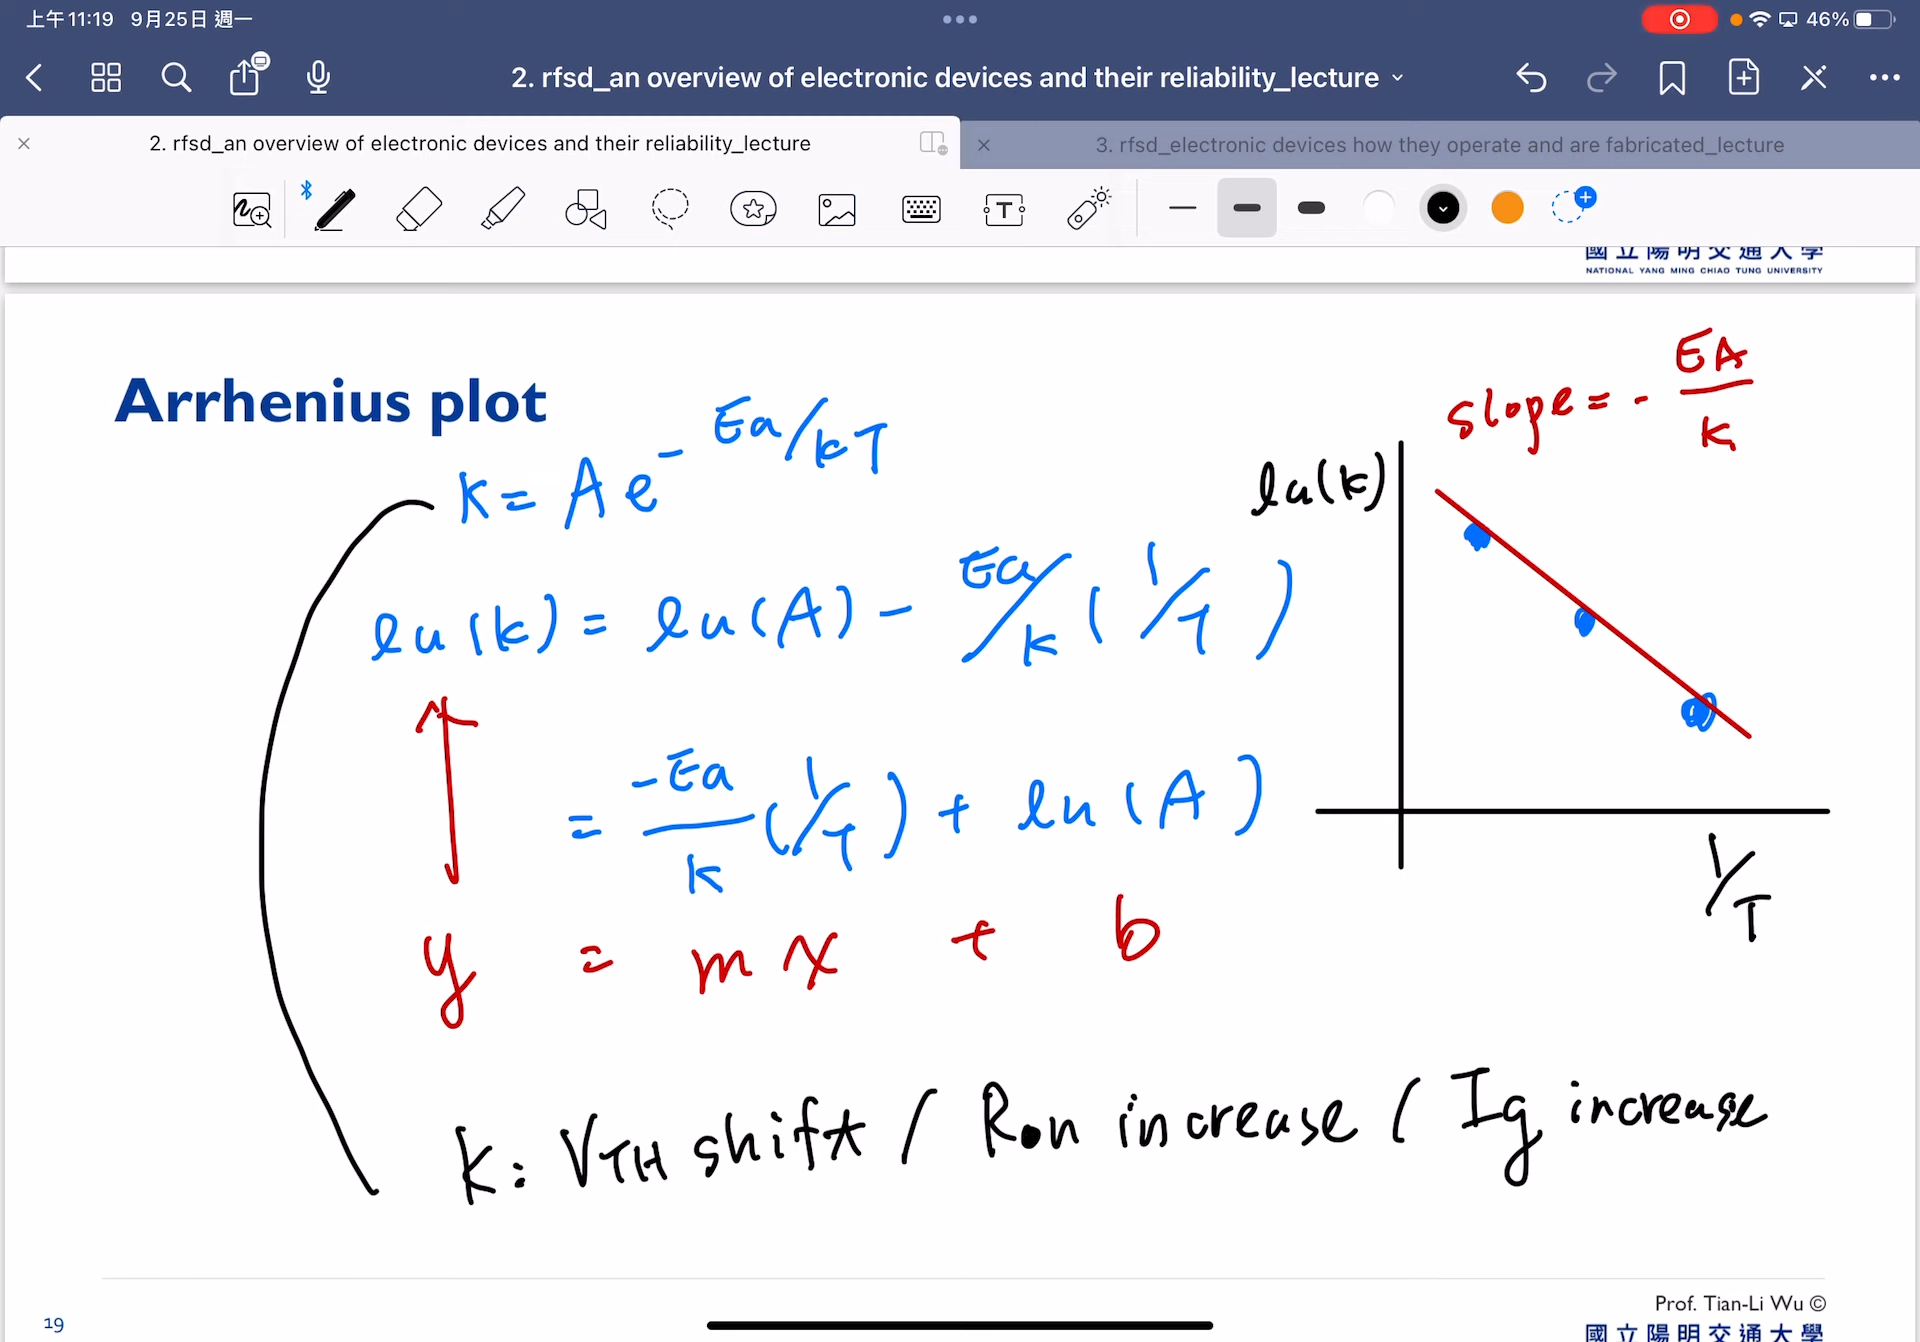 上午11:19 9月25日 週一
46%
2. rfsd_an overview of electronic devices and their reliability_lecture
2. rfsd_an overview of electronic devices and their reliability_lecture
3. rfsd_electronic devices how they operate and are fabricated_lecture
T
國立陽明交通大學
NATIONAL YANG MING CHIAO TUNG UNIVERSITY
Arrhenius plot
k = A e^- Ea/kT
slope = - EA/k
ln(k)
ln(k) = ln(A) - Ea/k (1/T)
= -Ea/k (1/T) + ln(A)
1/T
y = m x + b
k: VTH shift / Ron increase / Ig increase
Prof. Tian-Li Wu ©
19
國立陽明交通大學